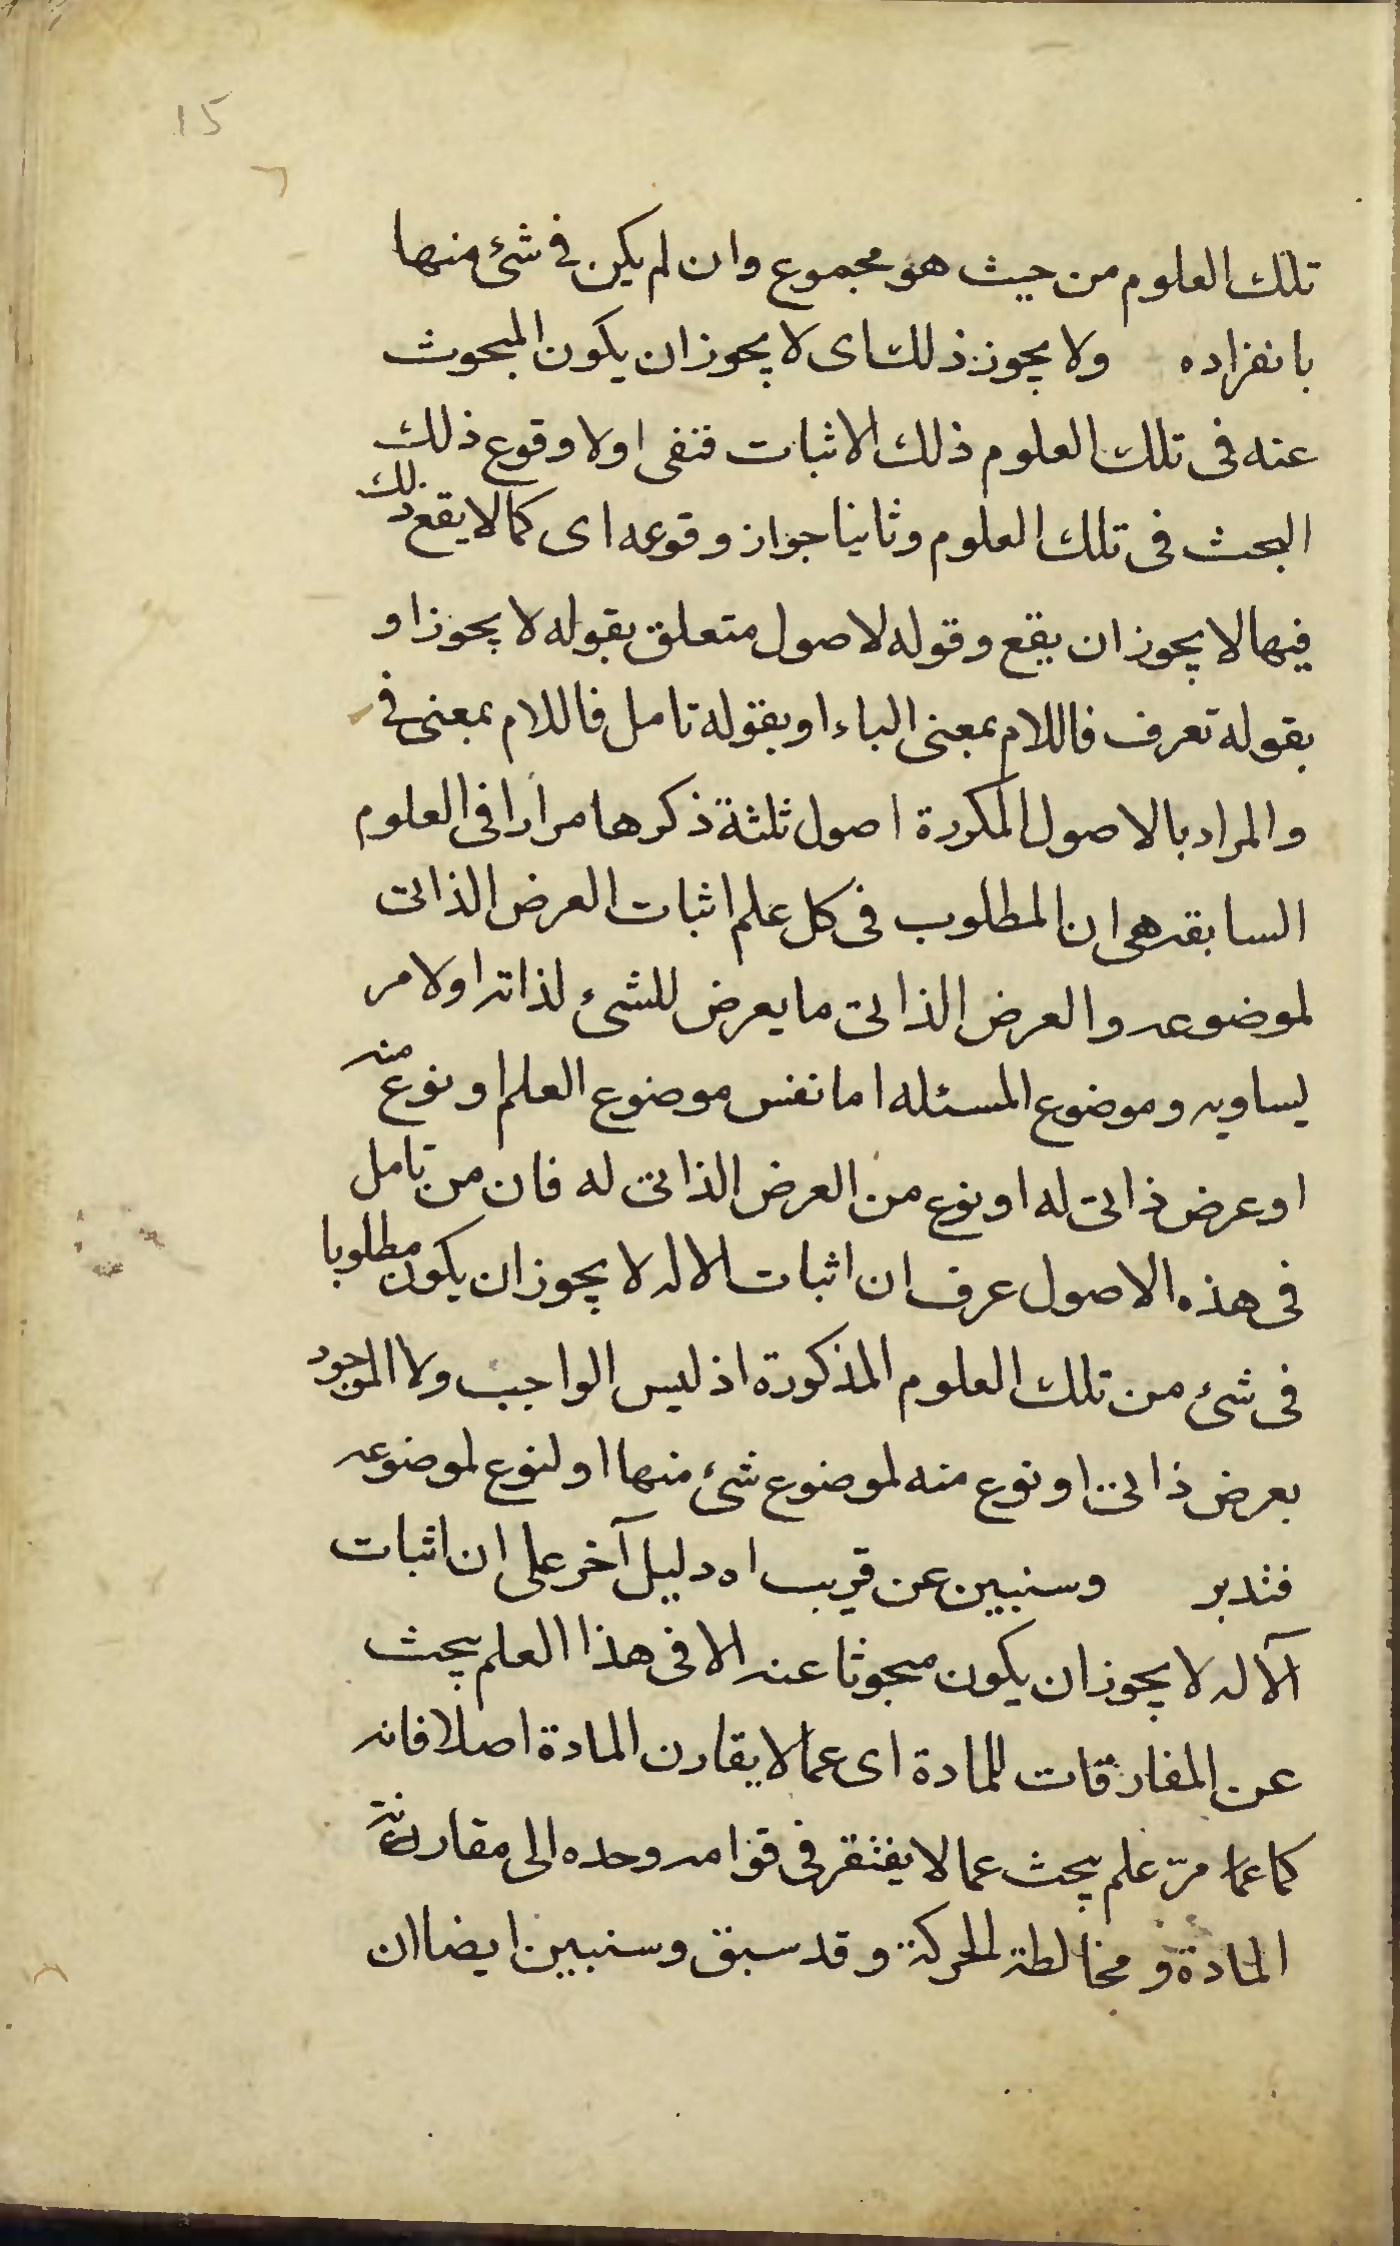 15
تلك العلوم من حيث هو مجموع وان لم يكن فى شئ منها
بانفراده ولا يجوز ذلك اى لا يجوز ان يكون المبحوث
عنه فى تلك العلوم ذلك الاثبات فنفى اولا وقوع ذلك
البحث فى تلك العلوم وثانيا جواز وقوعه اى كما لا يقع ذلك
فيها لا يجوز ان يقع وقوله لاصول متعلق بقوله لا يجوز او
بقوله تعرف فاللام بمعنى الباء او بقوله تامل فاللام بمعنى فى
والمراد بالاصول المكررة اصول ثلثة ذكرها مرارا فى العلوم
السابقه هى ان المطلوب فى كل علم اثبات العرض الذاتى
لموضوعه والعرض الذاتى ما يعرض للشئ لذاته او لامر
يساويه وموضوع المسئله اما نفس موضوع العلم او نوع منه
او عرض ذاتى له او نوع من العرض الذاتى له فان من تامل
فى هذه الاصول عرف ان اثبات الاله لا يجوز ان يكون مطلوبا
فى شئ من تلك العلوم المذكورة اذ ليس الواجب ولا الموجود
بعرض ذاتى او نوع منه لموضوع شئ منها او لنوع لموضوعه
فتدبر وسنبين عن قريب اه دليل آخر على ان اثبات
الآله لا يجوز ان يكون مبحوثا عنه الا فى هذا العلم يبحث
عن المفارقات للمادة اى عما لا يقارن المادة اصلا فانه
كما مرّ علم يبحث عما لا يفتقر فى قوامه وحده الى مقارنة
المادة و مخالطة الحركة وقد سبق وسنبين ايضا ان